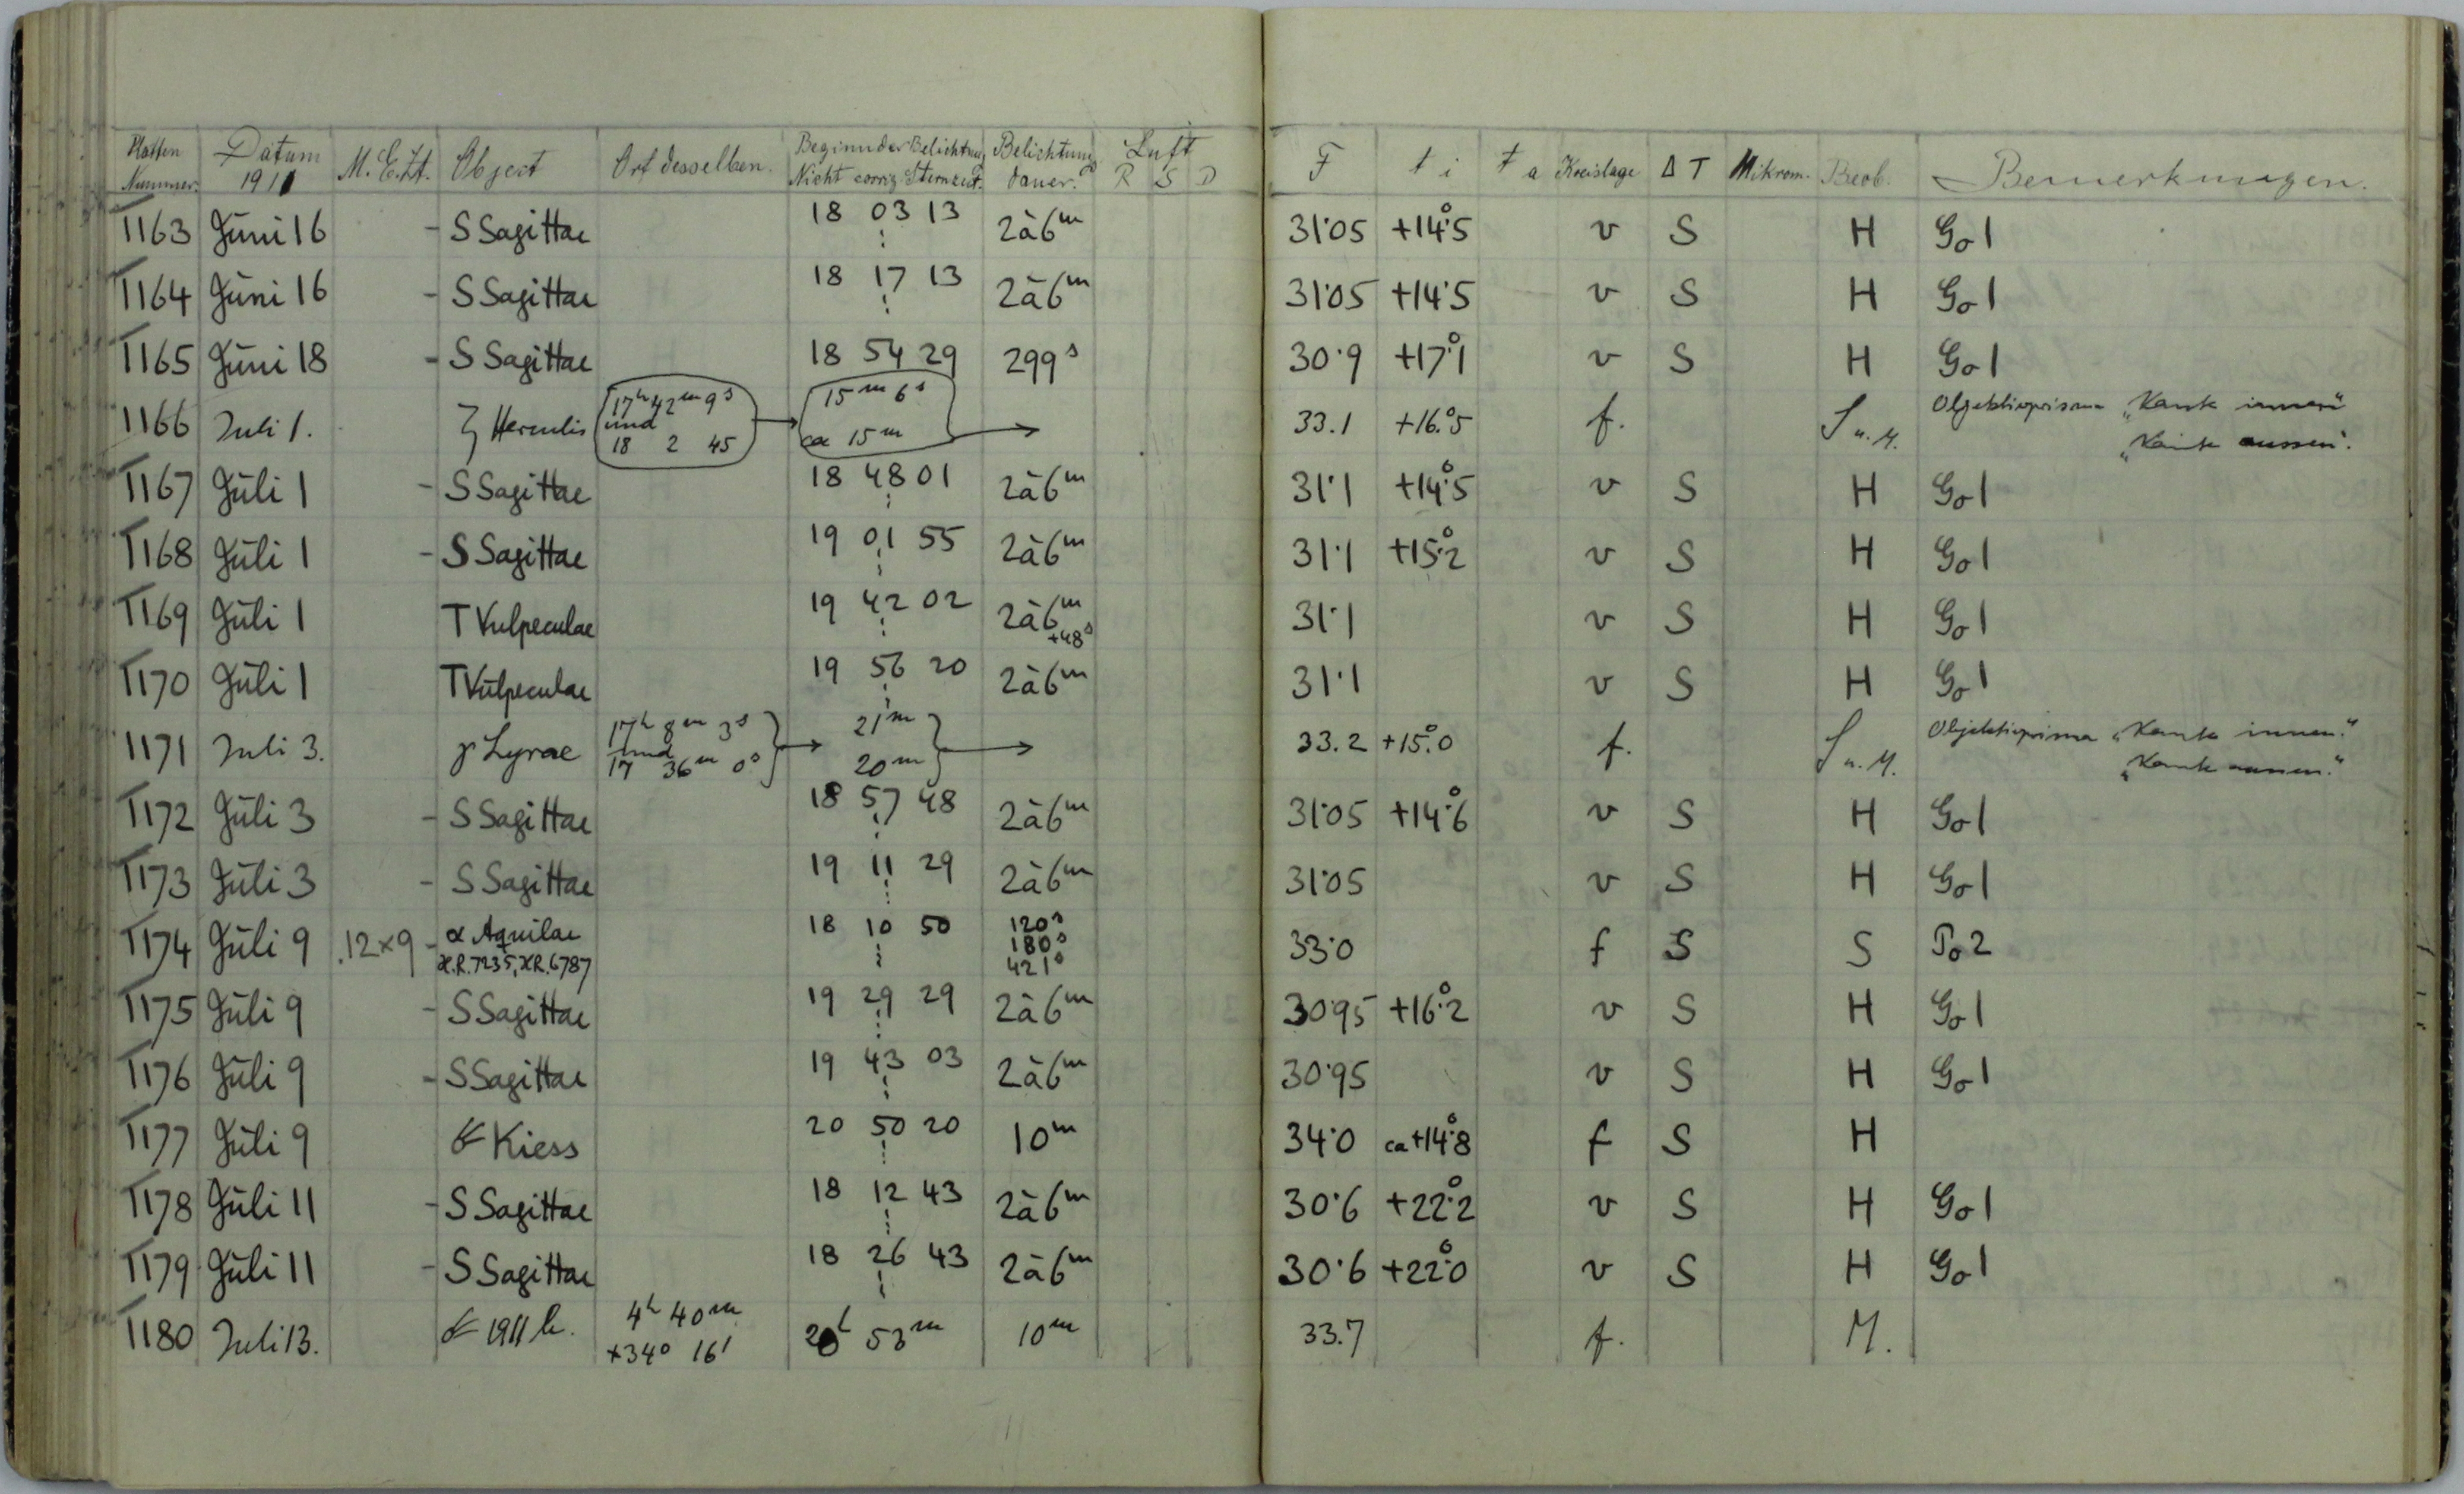 Platten Nummer. Datum 1911 M.E.Zt. Object Ort desselben. Beginn der Belichtung Nicht corrig. Sternzeit. Belichtungs dauer. Luft R S D F t i t a Kreislage Δ T Mikrom. Beob. Bemerkungen.
1163 Juni 16 - S Sagittae 18 03 13 2à6m 31·05 +14°·5 v S H Go 1
1164 Juni 16 - S Sagittae 18 17 13 2à6m 31·05 +14·5 v S H Go 1
1165 Juni 18 - S Sagittae 18 54 29 299s 30·9 +17°·1 v S H Go 1
1166 Juli 1. Herculis 17h 42m 9s und 18 2 45 15m 6s ca 15m 33.1 +16.°5 f. S u. M. Objektivprisma „Kante innen“
„Kante aussen“.
1167 Juli 1 - S Sagittae 18 48 01 2à6m 31·1 +14°·5 v S H Go 1
1168 Juli 1 - S Sagittae 19 01 55 2à6m 31·1 +15°·2 v S H Go 1
1169 Juli 1 T Vulpeculae 19 42 02 2à6m +48s 31·1 v S H Go 1
1170 Juli 1 T Vulpeculae 19 56 20 2à6m 31·1 v S H Go 1
1171 Juli 3. γ Lyrae 17h 8m 3s und 17 36m 0s 21m 20m 33.2 +15.°0 f. S u. M. Objektivprisma „Kante innen.“
„Kante aussen.“
1172 Juli 3 - S Sagittae 18 57 48 2à6m 31·05 +14°·6 v S H Go 1
1173 Juli 3 - S Sagittae 19 11 29 2à6m 31·05 v S H Go 1
1174 Juli 9 12×9 - α Aquilae H.R. 7235, H.R. 6787 18 10 50 120s 180s 421s 33·0 f S S Po 2
1175 Juli 9 - S Sagittae 19 29 29 2à6m 30·95 +16°·2 v S H Go 1
1176 Juli 9 - S Sagittae 19 43 03 2à6m 30·95 v S H Go 1
1177 Juli 9 ☄ Kiess 20 50 20 10m 34·0 ca +14°·8 f S H
1178 Juli 11 - S Sagittae 18 12 43 2à6m 30·6 +22°·2 v S H Go 1
1179 Juli 11 - S Sagittae 18 26 43 2à6m 30·6 +22°·0 v S H Go 1
1180 Juli 13. ☄ 1911 b. 4h 40m +34° 16' 20h 53m 10m 33.7 f. M.